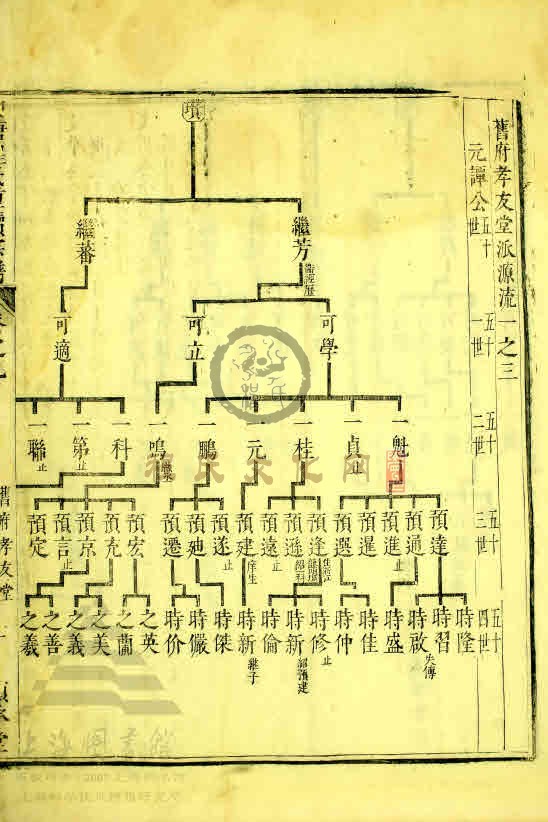 舊府孝友堂派源流一之三
元譚公五十世
瓆
繼芳
繼蕃
五十一世
可學
可立
可適
五十二世
一魁
一貞止
一桂
一元
一鵬
一鳴
一科
一第止
一聯止
五十三世
預達
預通
預進止
預暹
預選
預逢
預遜
預遠止
預建庠生
預遂止
預迪
預遷
預宏
預充
預京
預言止
預定
五十四世
時隆
時習
時啟失傳
時盛
時佳
時仲
時修止
時新紹預建
時倫
時新繼子
時傑
時儼
時价
之英
之蘭
之美
之義
之善
之羲
舊府孝友堂
上海圖書館